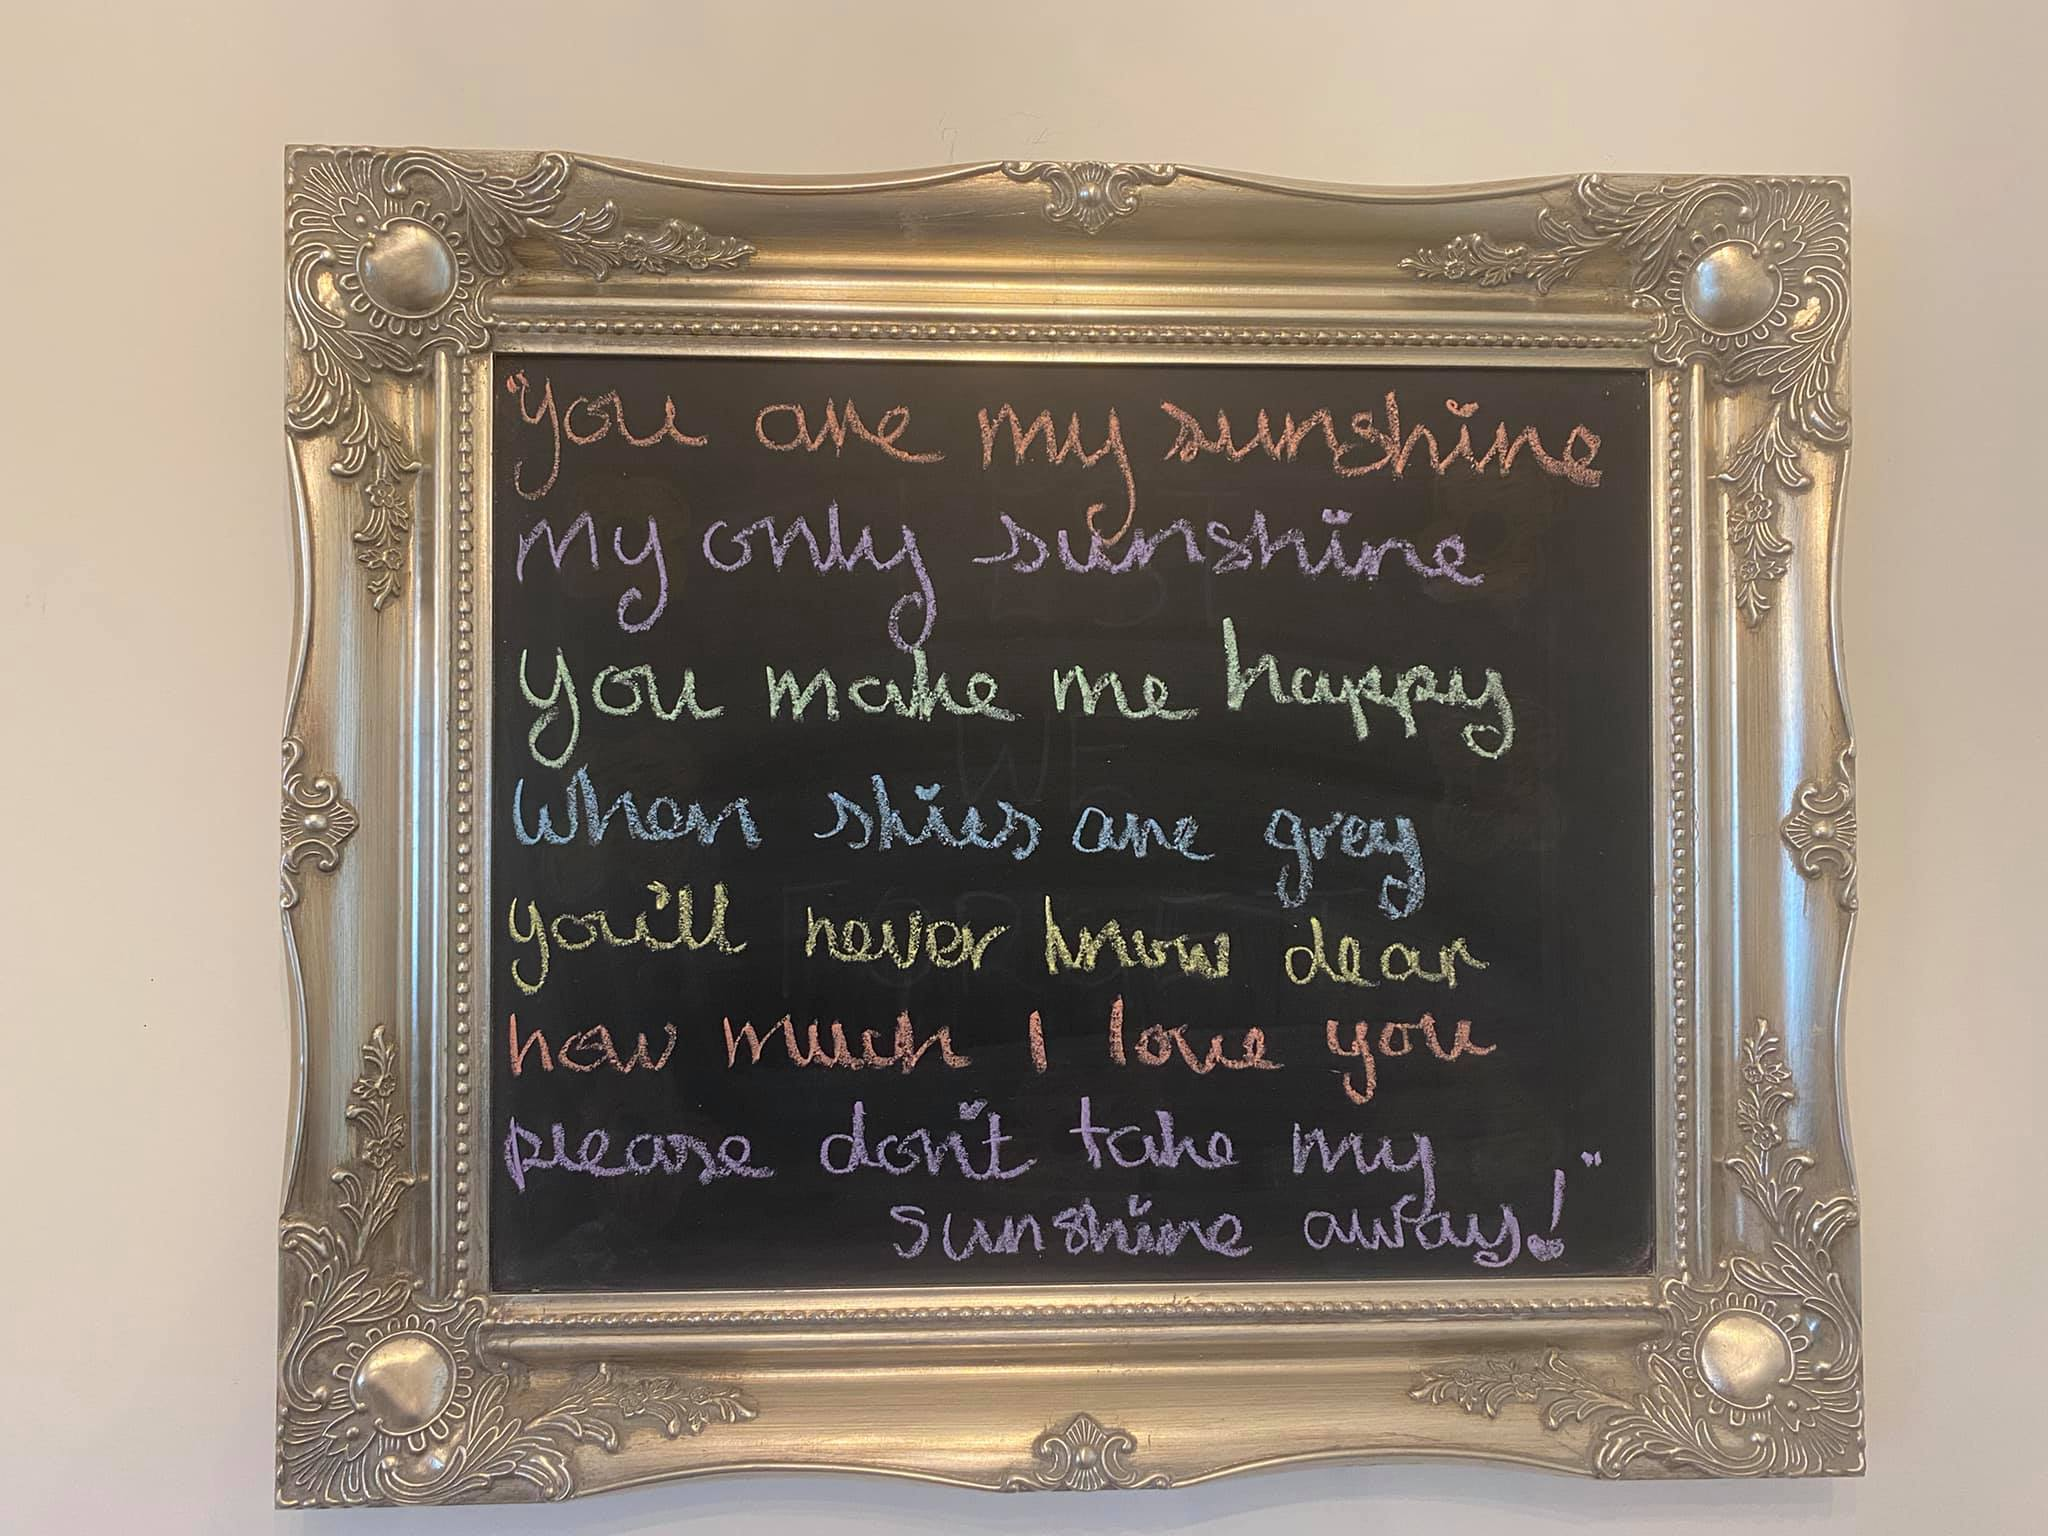 "you are my sunshine
my only sunshine
you make me happy
when skies are grey
you'll never know dear
how much I love you
please don't take my
sunshine away!"
LEST
WE
FORGET